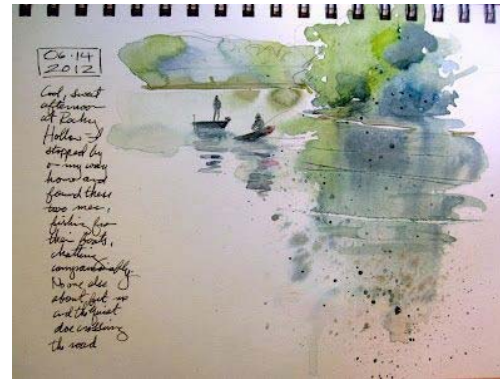 06·14
2012
Cool, sweet
afternoon
at Rocky
Hollow - I
stopped by
on my way
home and
found these
two men,
fishing from
their boats,
chatting
companionably.
No one else
about but us
and the quiet
doe crossing
the road